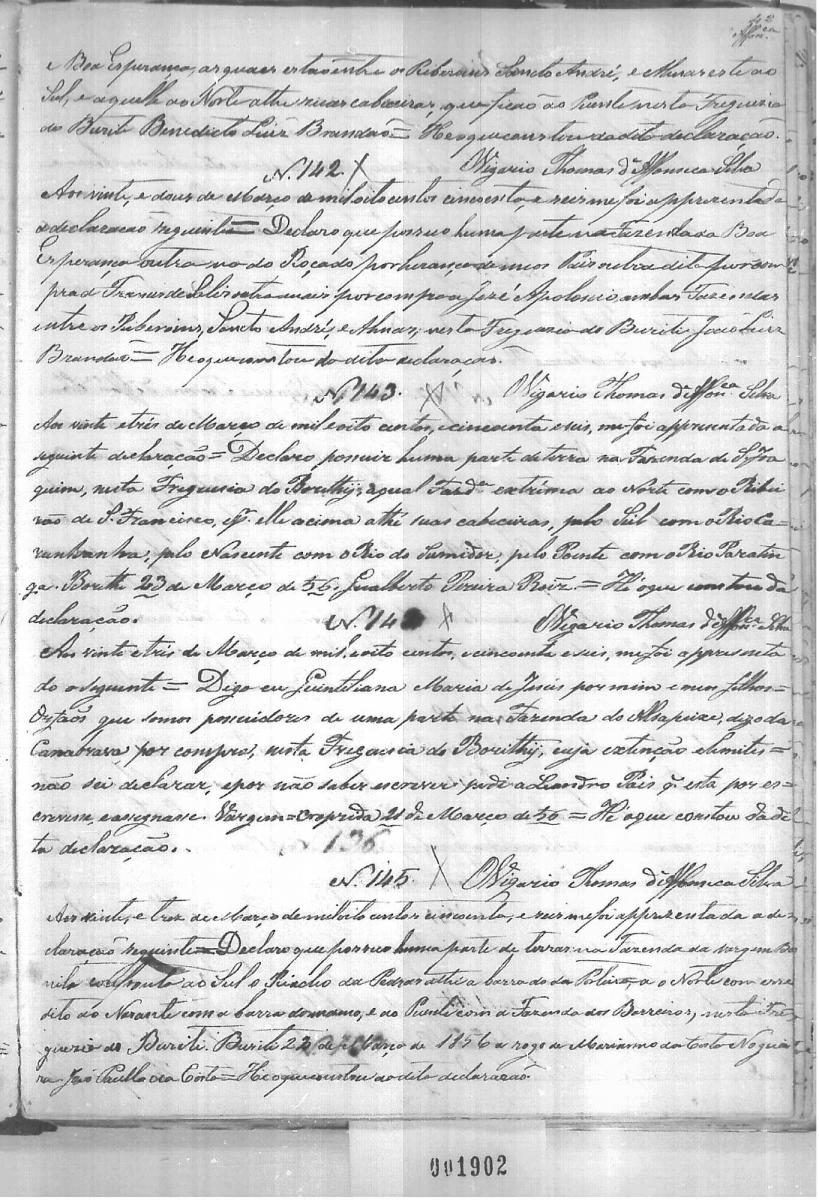 42
Affon.ca
e Boa Esperança, as quaes estão entre os Ribeirões Sancto André, e Almas este ao
Sul, e aquelle ao Norte athe suas cabeceiras, que ficão ao Puente nesta Freguezia
do Buriti Benedicto Luiz Brandaõ = He o que constou da dita declaração.
N. 142. X O Vigario Thomas d'Affonseca Silva
Aos vinte, e dous de Março de mil oito centos cincoenta, e seis me foi apprezentada
a declaracaõ seguinte = Declaro que possuo huma parte na Fazenda da Boa
Esperança outra no do Roçado por herança de meos Pais outra dita por com
pra d Franco de Sales outra mais por compra a José Apolonio, ambas Fazendas
entre os Ribeiroins, Sancto André, e Almas, nesta Freguezia do Buriti João Luiz
Brandaõ = He o que constou da dita declaração.
N. 143. X O Vigario Thomas d'Affon.ca Silva
Aos vinte e tris de Março de mil e oito centos, e cincoenta e seis, me foi appresentada a
seguinte declaração = Declaro possuir huma parte de terra na Fazenda de S. Joa
quim, nesta Freguesia do Borithy, a qual Fazd.a extrema ao Norte com o Ribei
rão de S. Francisco, e p.r elle acima athé suas cabeceiras, pelo Sul com o Rio Ca=
ranhanha, pelo Nascente com o Rio do Sumidor, pelo Poente com o Rio Paratin
ga. Borithi 23 de Março de 56. Gualberto Pereira Roiz. = Hé o que constou da
declaração.
N. 14 X O Vigario Thomas d'Affon.ca Silva
Aos vinte e tris de Março de mil, e oito centos, e cincoenta e seis, me foi appresenta
do o seguinte = Digo eu Quintiliana Maria de Jesus por mim e meus filhos=
Orfaõs que somos possuidores de uma parte na Fazenda do digo da
Canabrava por compra, nesta Freguesia do Borithy, cuja extinção e limites=
não sei declarar, e por não saber escrever pedi a Leandro Pais q. esta por es=
crevesse, e assignasse. Vargem= 21 de Março de 56 = Hé o que constou da di
ta declaração.
136
N. 145. \ O Vigario Thomas d'Affonseca Silva
Aos vinte, e trez de Março de mil oito centos cincoenta, e seis me foi apprezentada a de=
claracaõ seguinte = Declaro que possuo huma parte de terras na Fazenda da Vargem Bo
nita confronto ao Sul o Riacho da Pedras athe a barra do da a o Norte com esse
dito ao Nascente com a barra do mesmo, e ao Puente com a Fazenda dos Barreiros, nesta Fre
guezia do Buriti. Buriti 23 de Março de 1856 a rogo de Marianno da Costa Noguei
ra João Paullo da Costa = He o que constou da dita declaração.
001902